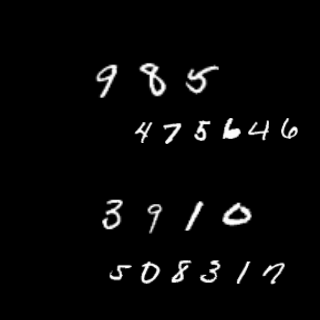 985
475646
3910
508317